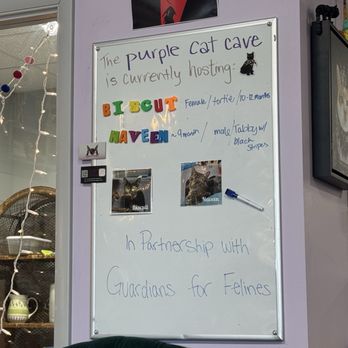 The purple cat cave
is currently hosting:
BISCUT Female/tortie/10-12 months
NAVEEN ~9 month / male/Tabby w/
black
stripes
Biscuit
Naveen
In Partnership with
Guardians for Felines